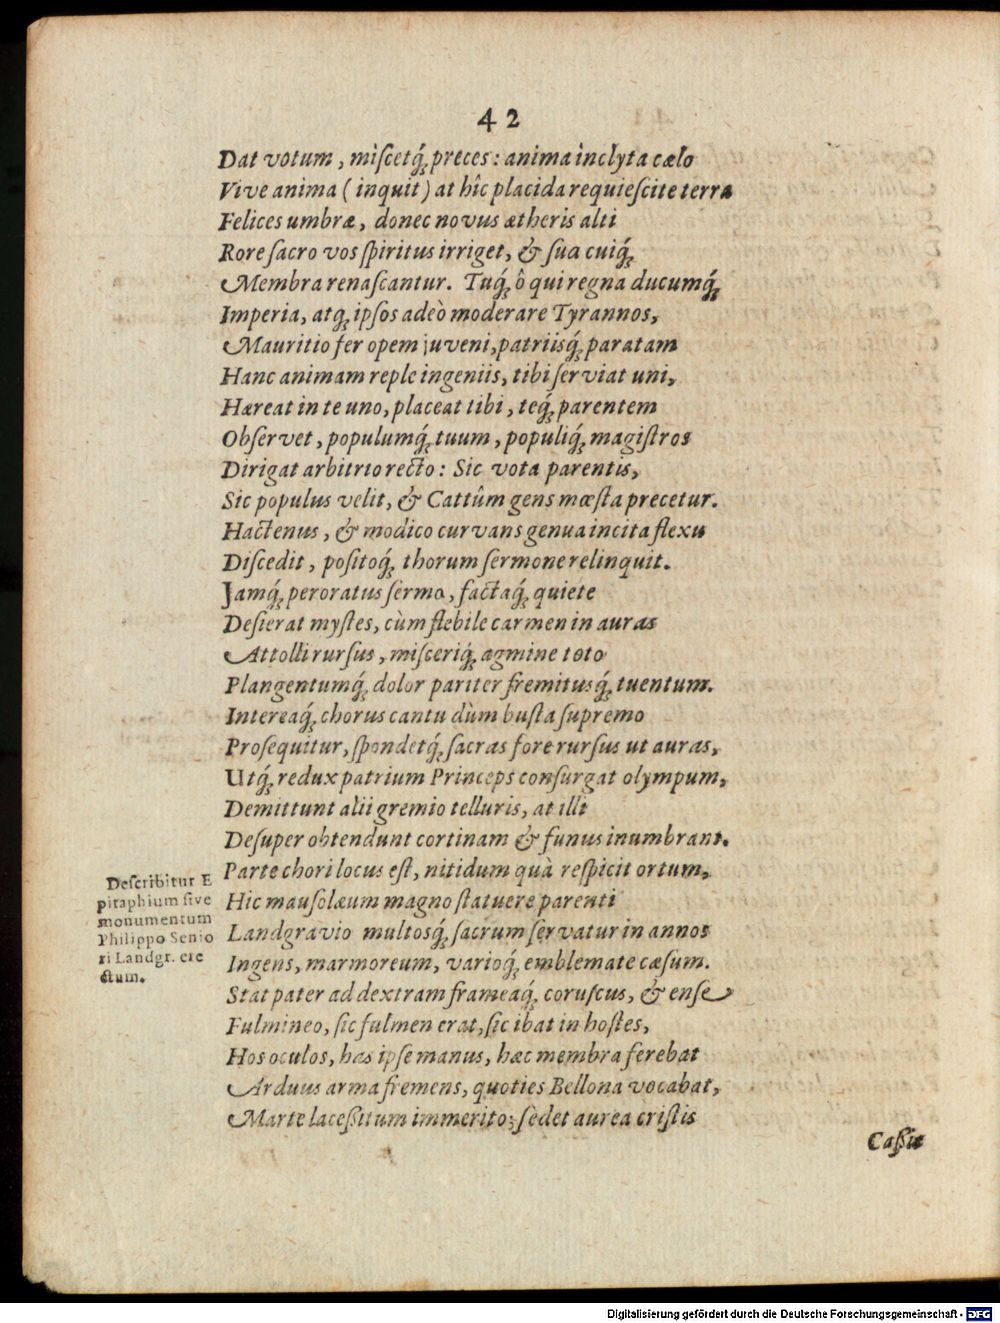 42
Dat votum, miſcetq́; preces: anima inclyta cælo
Vive anima (inquit) at hîc placida requieſcite terra
Felices umbræ, donec novus ætheris alti
Rore ſacro vos ſpiritus irriget, & ſua cuiq́;
Membra renaſcantur. Tuq́; ô qui regna ducumq́;
Imperia, atq; ipſos adeò moderare Tyrannos,
Mauritio fer opem juveni, patriisq́; paratam
Hanc animam reple ingeniis, tibi ſerviat uni,
Hæreat in te uno, placeat tibi, teq́; parentem
Obſervet, populumq́; tuum, populiq́; magiſtros
Dirigat arbitrio recto: Sic vota parentis,
Sic populus velit, & Cattûm gens mœſta precetur.
Hactenus, & modico curvans genua incita flexu
Diſcedit, poſitoq́; thorum ſermone relinquit.
Jamq́; peroratus ſermo, factaq́; quiete
Deſierat myſtes, cùm flebile carmen in auras
Attolli rurſus, miſceriq́; agmine toto
Plangentumq́; dolor pariter fremitusq́; tuentum.
Intereaq́; chorus cantu dùm buſta ſupremo
Proſequitur, ſpondetq́; ſacras fore rurſus ut auras,
Utq́; redux patrium Princeps conſurgat olympum,
Demittunt alii gremio telluris, at illi
Deſuper obtendunt cortinam & funus inumbrant.
Parte chori locus eſt, nitidum quà reſpicit ortum,
Hic mauſolæum magno ſtatuere parenti
Landgravio multosq́; ſacrum ſervatur in annos
Ingens, marmoreum, varioq́; emblemate cæſum.
Stat pater ad dextram frameaq́; coruſcus, & enſe
Fulmineo, ſic fulmen erat, ſic ibat in hoſtes,
Hos oculos, has ipſe manus, hæc membra ferebat
Arduus arma fremens, quoties Bellona vocabat,
Marte laceßitum immerito; ſedet aurea criſtis
Caßis
Deſcribitur E
pitaphium ſive
monumentum
Philippo Senio
ri Landgr. ere
ctum.
Digitalisierung gefördert durch die Deutsche Forschungsgemeinschaft - DFG